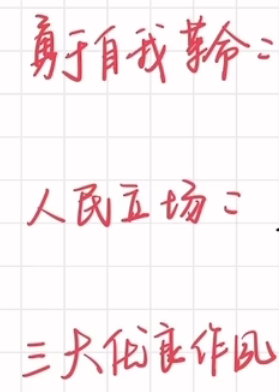 勇于自我革命：
人民立场：
三大优良作风